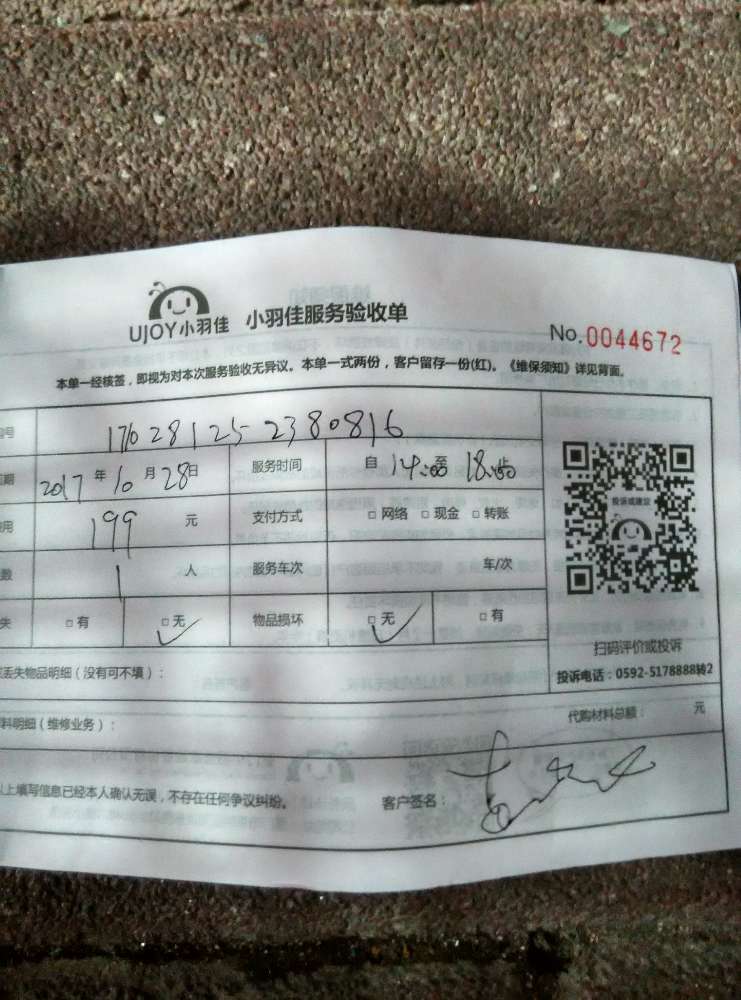 UJOY小羽佳 小羽佳服务验收单
No.0044672
本单一经核签，即视为对本次服务验收无异议。本单一式两份，客户留存一份(红)。《维保须知》详见背面。
号 17028125-2380816
期 2017年10月28日 服务时间 自14:00至18:00止
用 199元 支付方式 □网络 □现金 □转账
数 1人 服务车次 车/次
失 □有 □无 物品损坏 □无 □有
投诉或建议
扫码评价或投诉
投诉电话：0592-5178888转2
丢失物品明细（没有可不填）：
料明细（维修业务）： 代购材料总额： 元
以上填写信息已经本人确认无误，不存在任何争议纠纷。 客户签名：